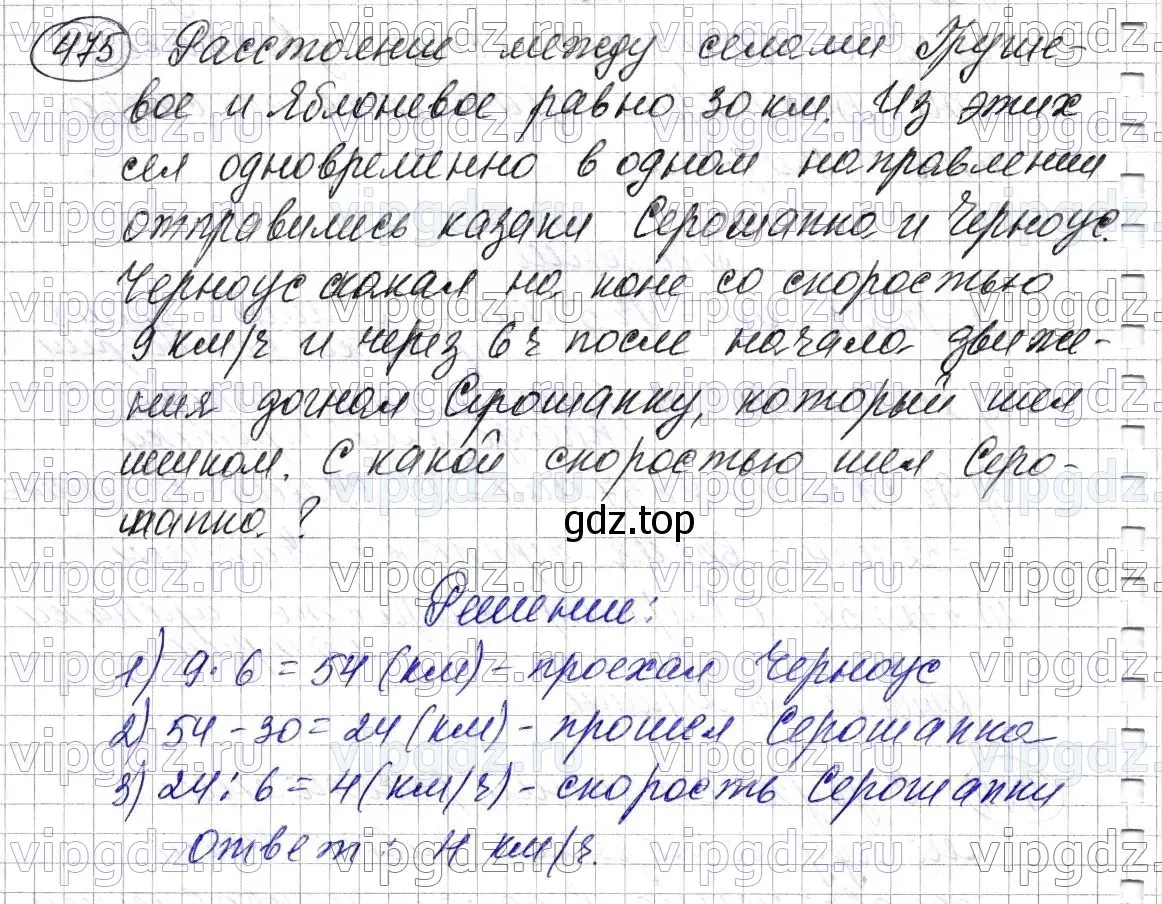 475 Расстояние между селами Груше-
вое и Яблоневое равно 30 км. Из этих
сел одновременно в одном направлении
отправились казаки Серошапка и Черноус.
Черноус скакал на коне со скоростью
9 км/ч и через 6 ч после начала движе-
ния догнал Серошапку, который шел
пешком. С какой скоростью шел Серо-
шапка?
gdz.top
Решение:
1) 9 · 6 = 54 (км) - проехал Черноус
2) 54 - 30 = 24 (км) - прошел Серошапка
3) 24 : 6 = 4 (км/ч) - скорость Серошапки
Ответ: 4 км/ч.
vipgdz.ru